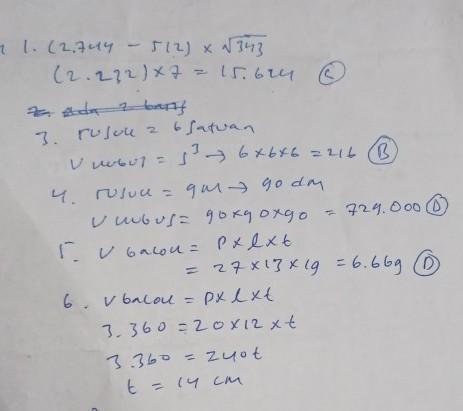 1. (2.744 - 512) × √343
(2.232) × 7 = 15.624 C
2. ada 2 baris
3. rusuk = 6 satuan
V kubus = s³ → 6×6×6 = 216 B
4. rusuk = 9m → 90 dm
V kubus = 90×90×90 = 729.000 D
5. V balok = p×l×t
= 27×13×19 = 6.669 D
6. V balok = p×l×t
3.360 = 20×12×t
3.360 = 240t
t = 14 cm